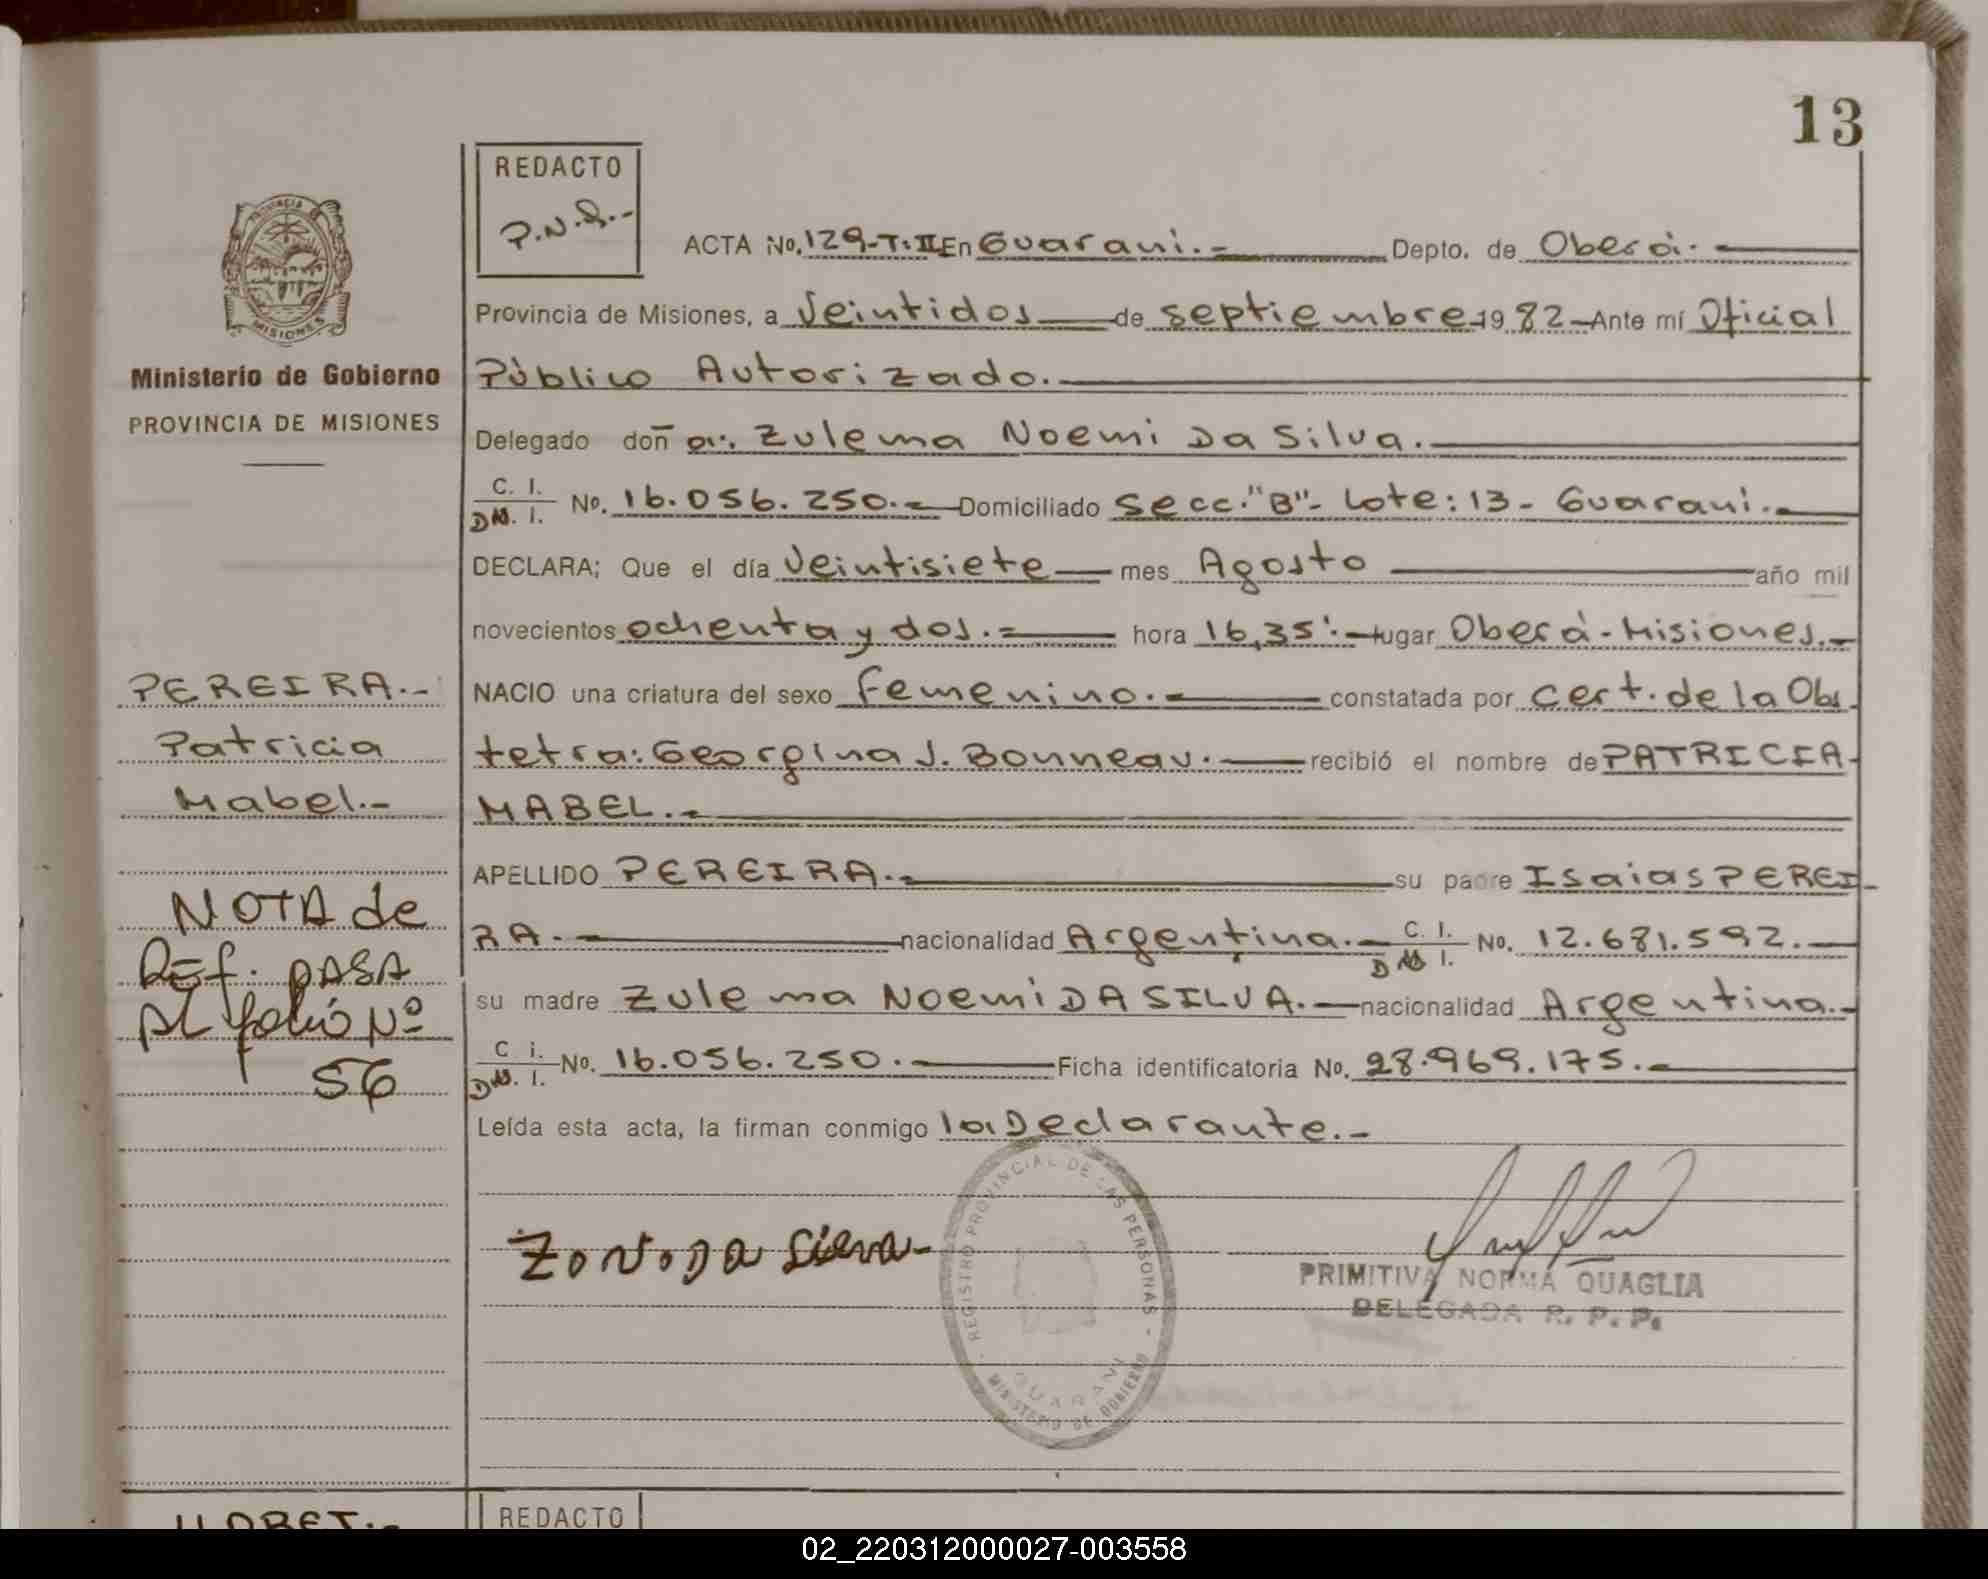 13
REDACTO
P.N.Q.-
PROVINCIA DE
MISIONES
Ministerio de Gobierno
PROVINCIA DE MISIONES
ACTA No. 129-T:II En Guarani.- Depto. de Oberá.-
Provincia de Misiones, a Veintidos de septiembre 19 82 Ante mí Oficial
Público Autorizado.
Delegado doñ a: Zulema Noemi Da Silva.
C. I. DM. I. No. 16.056.250.- Domiciliado Secc."B"- Lote: 13 - Guarani.-
DECLARA; Que el día Veintisiete mes Agosto año mil
novecientos ochenta y dos.- hora 16,35'.- lugar Oberá - Misiones.-
NACIO una criatura del sexo femenino.- constatada por cert. de la Obs
tetra: Georgina J. Bonneau.- recibió el nombre de PATRICIA
MABEL.-
APELLIDO PEREIRA.- su padre Isaias PEREI-
RA.- nacionalidad Argentina.- C. I. DM I. No. 12.681.592.-
su madre Zulema NOEMI DA SILVA.- nacionalidad Argentina.-
C i. DM. I. No. 16.056.250.- Ficha identificatoria No. 28.969.175.-
Leída esta acta, la firman conmigo la Declarante.-
PEREIRA.-
Patricia
Mabel.-
NOTA de
Ref: PASA
AL folio Nº
56
Z.N.DA Silva-
REGISTRO PROVINCIAL DE LAS PERSONAS - MINISTERIO DE GOBIERNO -
GUARANI
PRIMITIVA NORMA QUAGLIA
DELEGADA R. P. P.
REDACTO
02_220312000027-003558